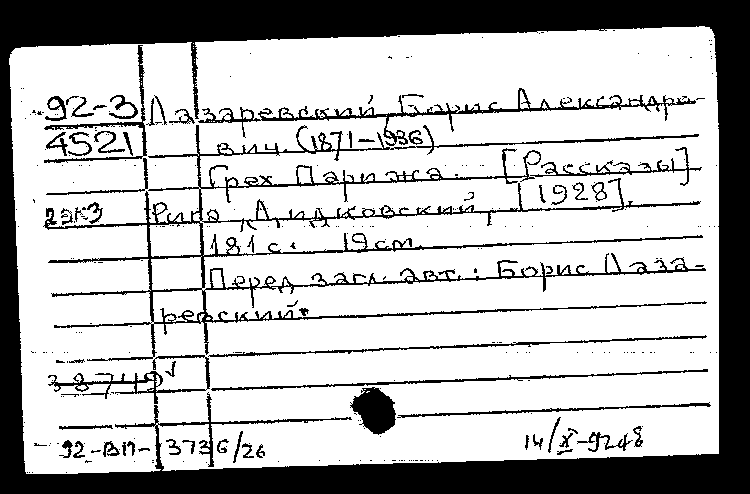 92-3 Лазаревский, Борис Александро-
4521 вич. (1871-1936)
Грех Парижа. [Рассказы]
2 экз Рига, "Дидковский", [1928].
181 с. 19 см.
Перед загл. авт.: Борис Лаза-
ревский.
38749
92-ВП-3736/26 14/X-9248